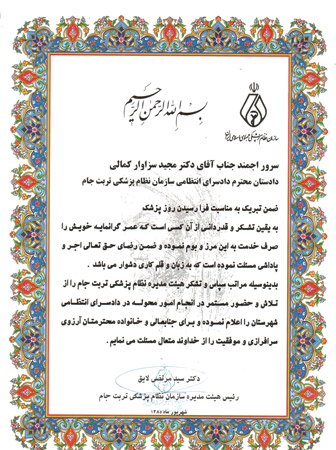 بسم الله الرحمن الرحیم
سازمان نظام پزشکی جمهوری اسلامی ایران
سرور ارجمند جناب آقای دکتر مجید سزاوار کمالی
دادستان محترم دادسرای انتظامی سازمان نظام پزشکی تربت جام
ضمن تبریک به مناسبت فرا رسیدن روز پزشک
به یقین تشکر و قدردانی از آن کسی است که عمر گرانمایه خویش را
صرف خدمت به این مرز و بوم نموده و ضمن رضای حق تعالی اجر و
پاداشی مسئلت نموده است که به زبان و قلم کاری دشوار می باشد .
بدینوسیله مراتب سپاس و تشکر هیئت مدیره نظام پزشکی تربت جام را از
تلاش و حضور مستمر در انجام امور محوله در دادسرای انتظامی
شهرستان را اعلام نموده و برای جنابعالی و خانواده محترمتان آرزوی
سرافرازی و موفقیت را از خداوند متعال مسئلت می نمایم .
دکتر سید مرتضی لایق
رئیس هیئت مدیره سازمان نظام پزشکی تربت جام
شهریور ماه ۱۳۸۵